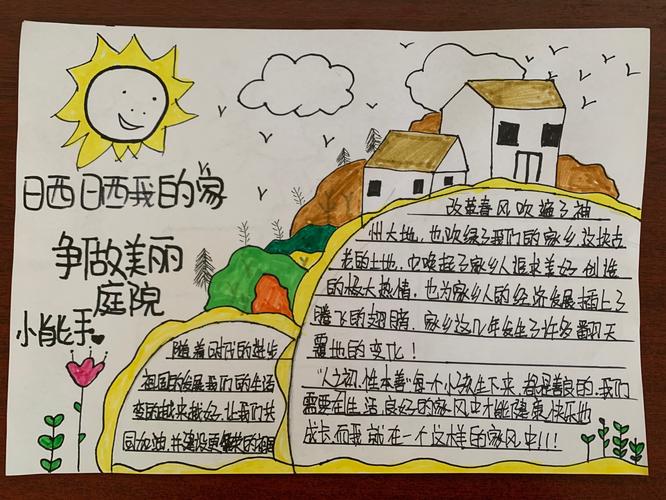 日晒日晒我的家
争做美丽
庭院
小能手
随着时代的进步
祖国的发展我们的生活
变的越来越好,让我们共
同加油,并建设更繁荣的祖国
改革春风吹遍了神
州大地,也吹绿了我们的家乡这块古
老的土地,也唤起了家乡人追求美好创造
的极大热情,也为家乡人的经济发展插上了
腾飞的翅膀,家乡这几年发生了许多翻天
覆地的变化!
"人之初,性本善"每个小孩生下来,都是善良的,我们
需要在生活良好的家风中才能健康快乐地
成长而我就在一个这样的家风中!!!